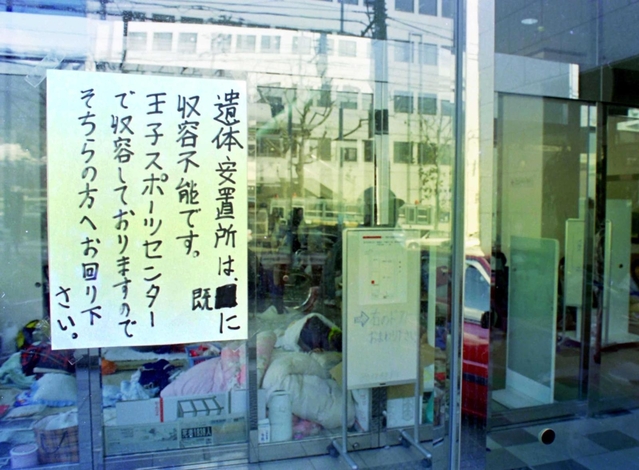 遺体安置所は、既に
収容不能です。
王子スポーツセンター
で収容しておりますので
そちらの方へお回り下
さい。